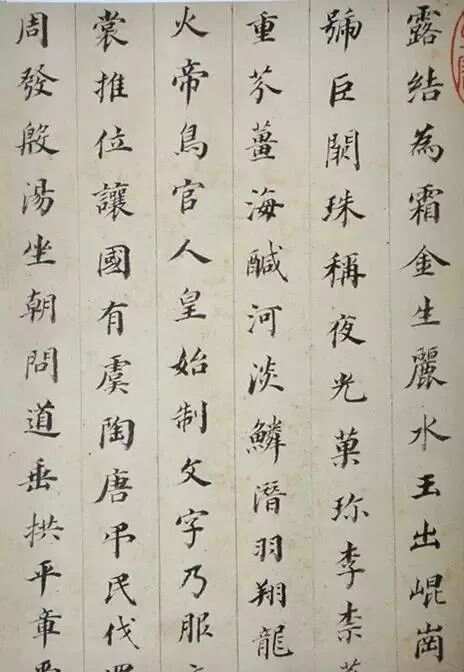 露結為霜金生麗水玉出崐崗
號巨闕珠稱夜光菓珎李柰
重芥薑海鹹河淡鱗潛羽翔龍
火帝鳥官人皇始制文字乃服
裳推位讓國有虞陶唐吊民伐
周發殷湯坐朝問道垂拱平章